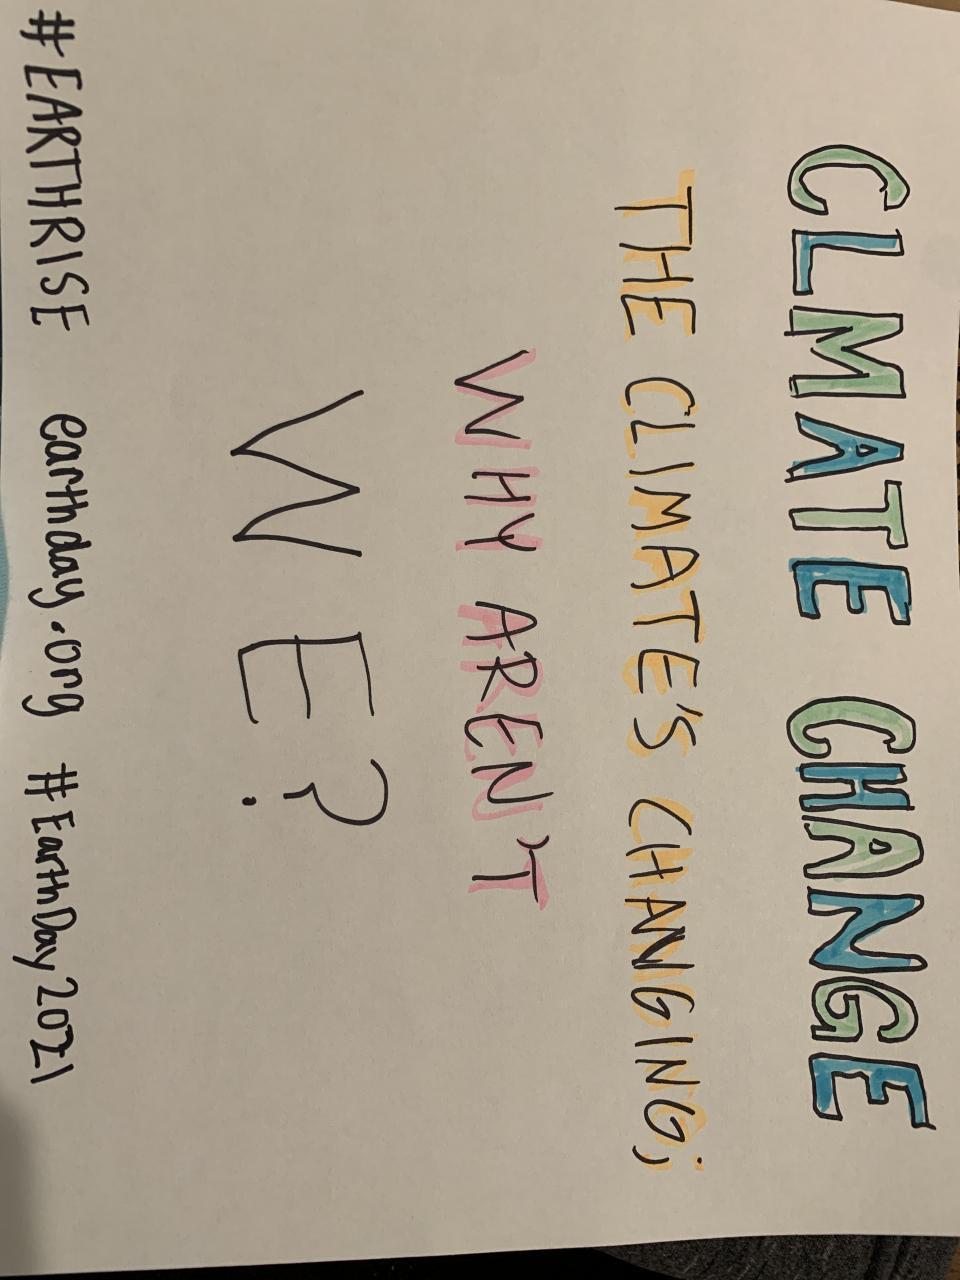 CLMATE CHANGE
THE CLIMATE'S CHANGING;
WHY AREN'T
WE?
#EARTHRISE earthday.org #EarthDay2021